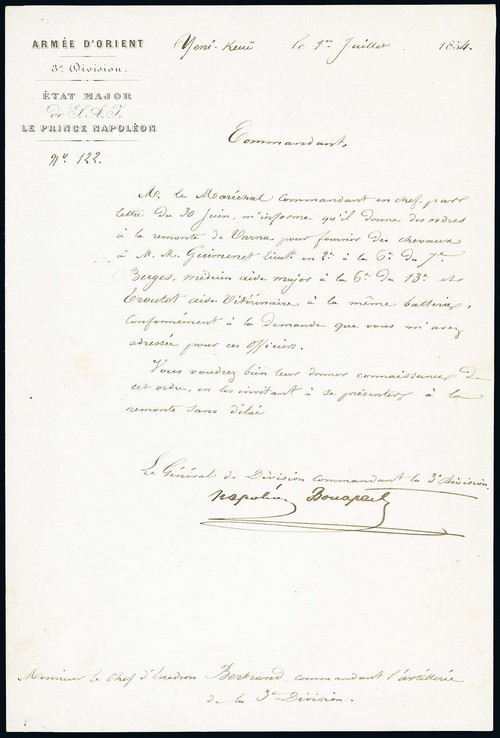 ARMÉE D'ORIENT
3e Division.
ÉTAT MAJOR
de S.A.I.
LE PRINCE NAPOLÉON
No. 122.
Yeni-Keui le 1er Juillet 1854.
Commandant,
M. le Maréchal commandant en chef, par
lettre du 30 Juin, m'informe qu'il donne des ordres
à la remonte de Varna pour fournir des chevaux
à M.M. Guimenet Lieut. en 2e à la 6e du 7me
Berges, médecin aide major à la 6e du 13e et
Eroutot aide Vétérinaire à la même batterie,
conformément à la demande que vous m'avez
adressée pour ces officiers.
Vous voudrez bien leur donner connaissance de
cet ordre, en les invitant à se présenter à la
remonte sans délai
Le Général de Division commandant la 3e Division,
Napoléon Bonaparte
Monsieur le Chef d'Escadron Bertrand, commandant l'artillerie
de la 3e Division.